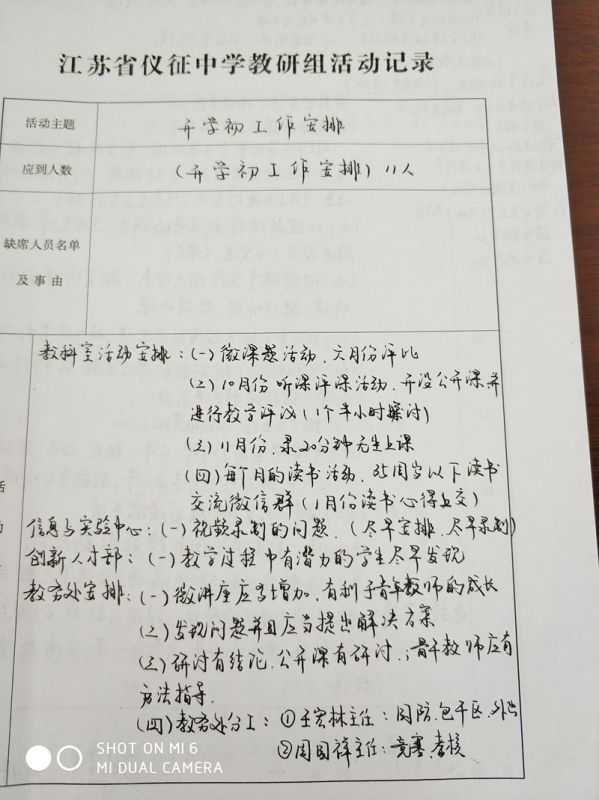 江苏省仪征中学教研组活动记录
活动主题 开学初工作安排
应到人数 (开学初工作安排) 11人
缺席人员名单
及事由
教科室活动安排：(一) 微课题活动、六月份评比
(二) 10月份 听课评课活动、开设公开课并
进行教学评议 (1个半小时探讨)
(三) 11月份、录20分钟无生上课
(四) 每个月的读书活动、35周岁以下读书
交流微信群 (1月份读书心得上交)
信息与实验中心：(一) 视频录制的问题、(尽早安排、尽早录制)
创新人才部：(一) 教学过程中有潜力的学生尽早发现
教务处安排：(一) 微讲座应当增加、有利于青年教师的成长
(二) 发现问题并且应当提出解决方案
(三) 研讨有结论、公开课有研讨、骨干教师应有
方法指导.
(四) 教务处分工：① 主任：国防、包干区、外出
② 周国祥主任：竞赛、考核
活
动
SHOT ON MI 6
MI DUAL CAMERA